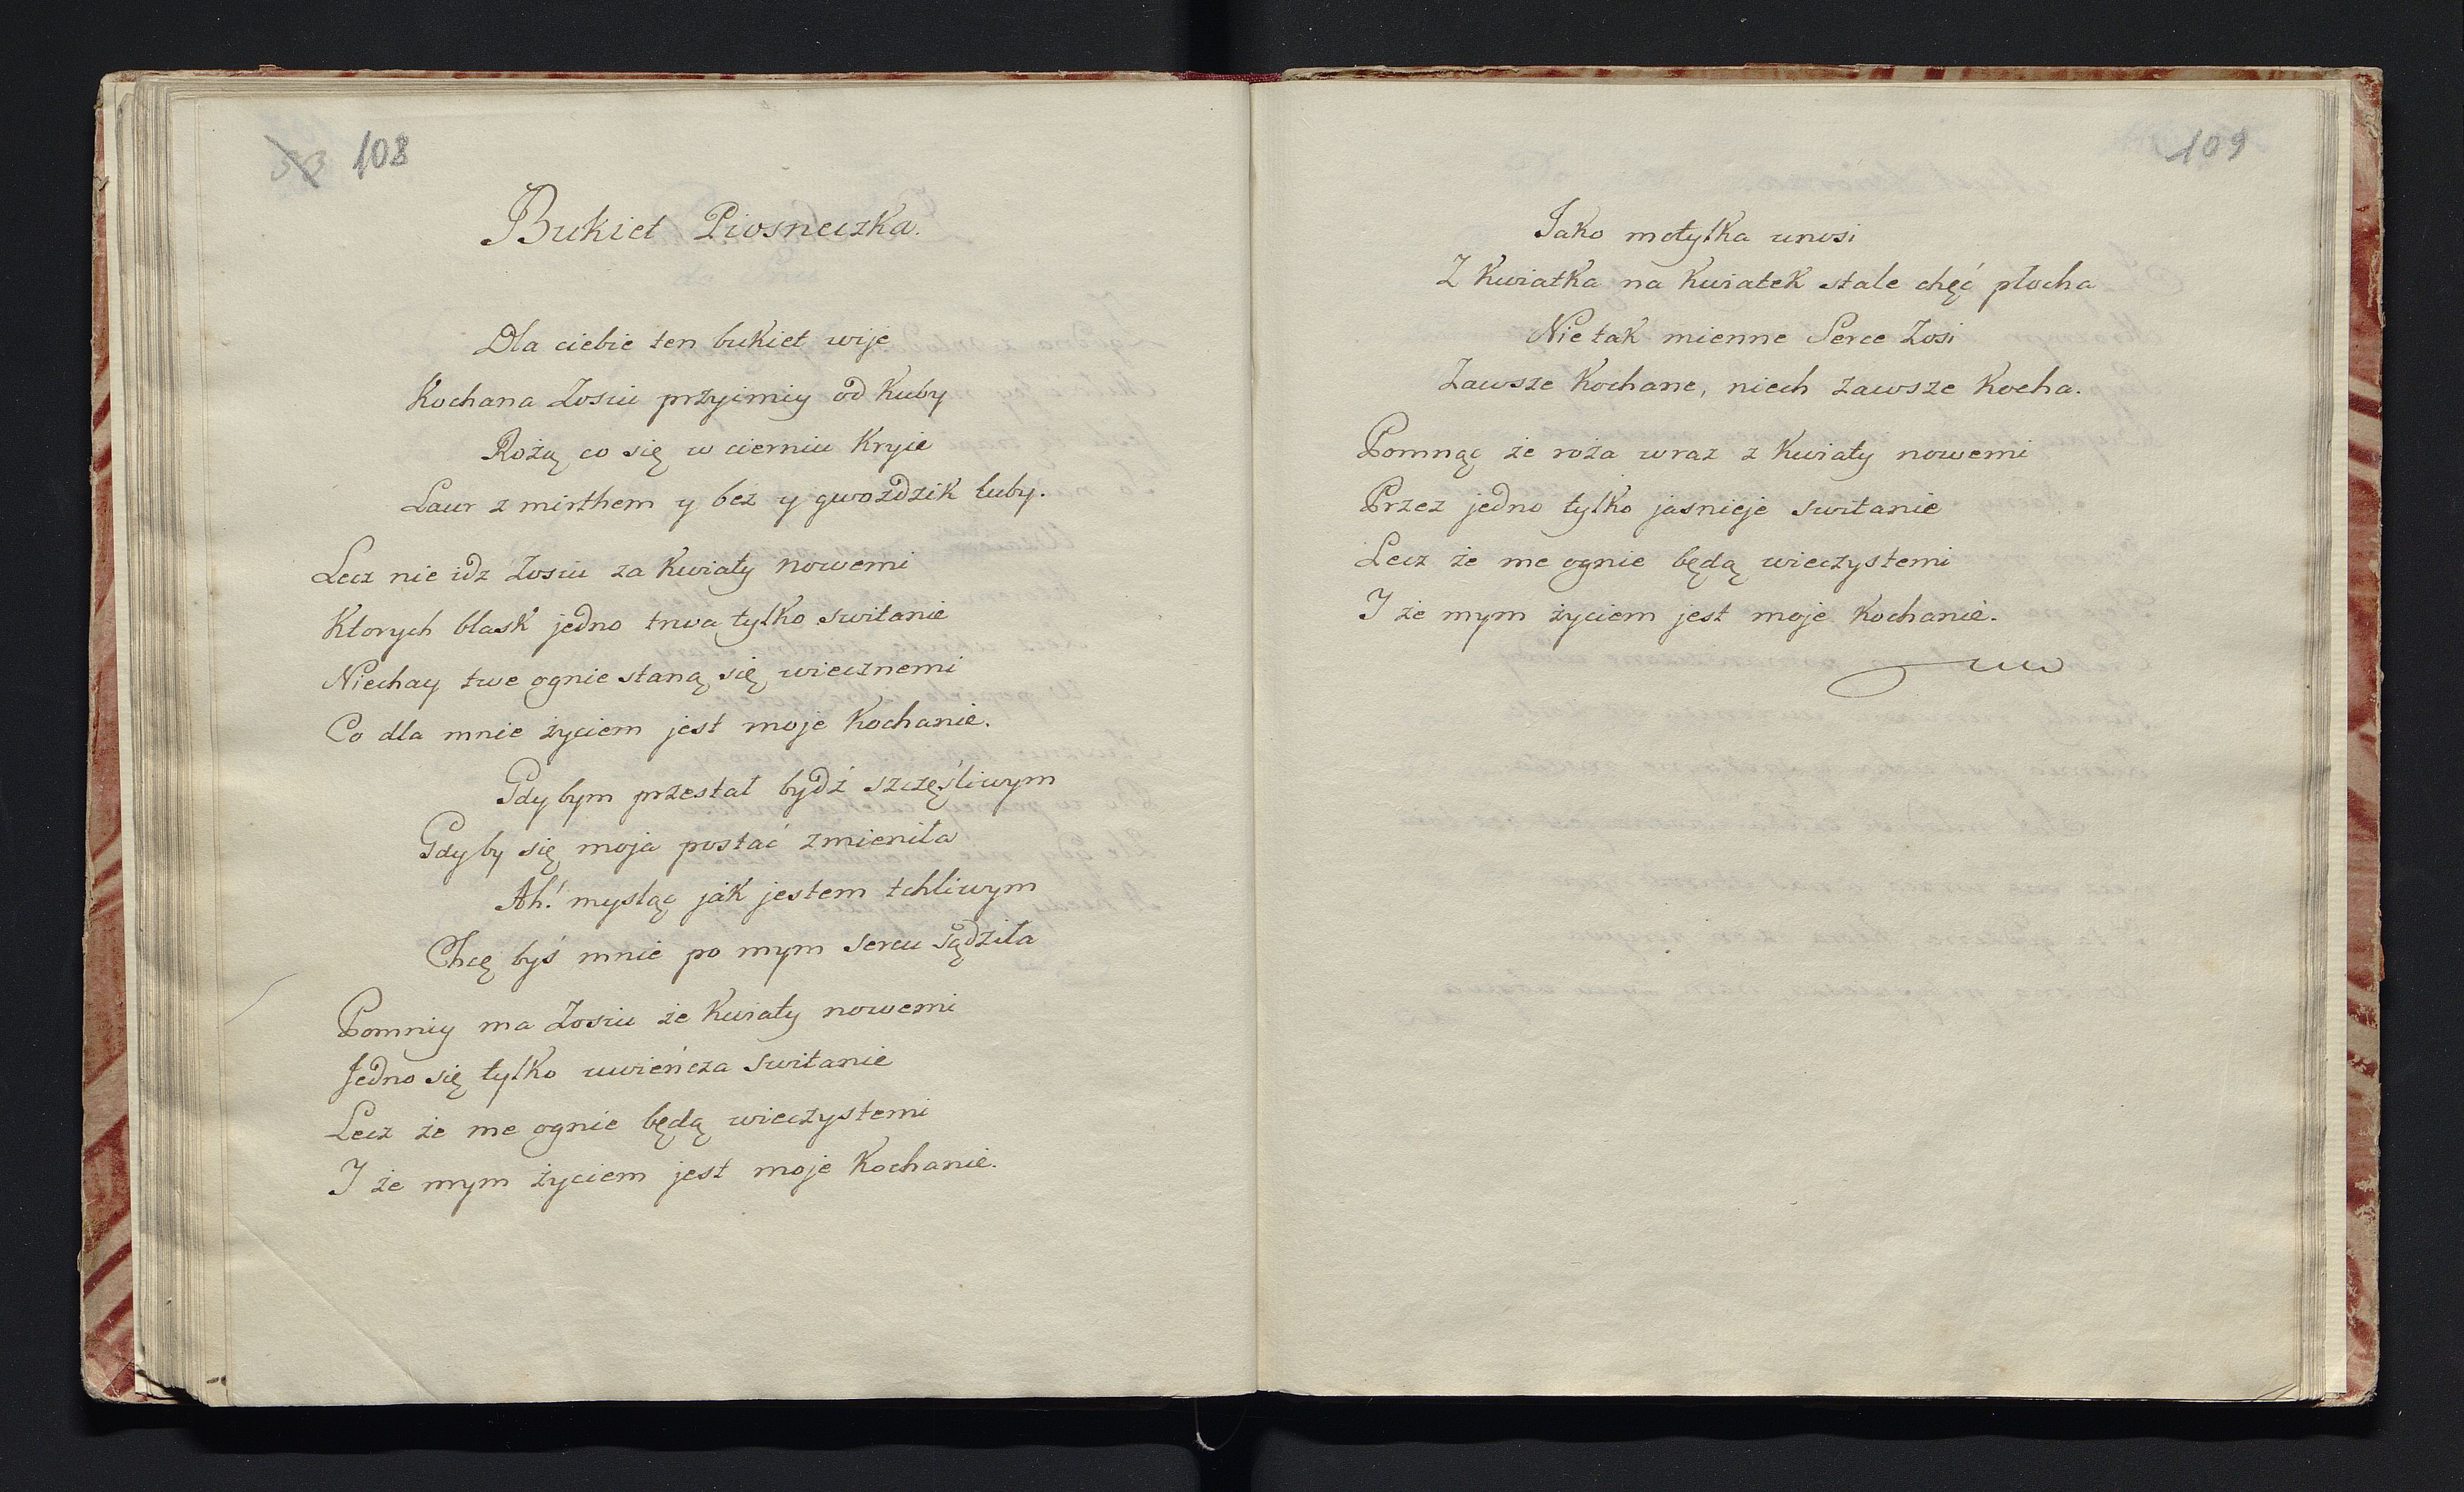 53 108
Bukiet Piosneczka.
Dla ciebie ten bukiet wije
Kochana Zosiu przyimiy od Kuby
Rożą co się w cierniu Kryie
Laur z mirthem y bez y gwoździk luby.
Lecz nie idz Zosiu za Kwiaty nowemi
Ktorych blask jedno trwa tylko switanie
Niechay twe ognie staną się wiecznemi
Co dla mnie życiem jest moje Kochanie.
Gdy bym przestał bydź szczęśliwym
Gdyby się moja postać zmieniła
Ah! mysląc jak jestem tchliwym
Chcę byś mnie po mym sercu sądziła
Pomniy ma Zosiu że Kwiaty nowemi
Jedno się tylko uwieńcza switanie
Lecz że me ognie będą wieczystemi
I że mym życiem jest moje Kochanie.
109
Jako motylka unosi
Z Kwiatka na Kwiatek stale chęć płocha
Nie tak mienne Serce Zosi
Zawsze Kochane, niech zawsze Kocha.
Pomnąc że roża wraz z Kwiaty nowemi
Przez jedno tylko jasnieje switanie
Lecz że me ognie będą wieczystemi
I że mym życiem jest moje Kochanie.